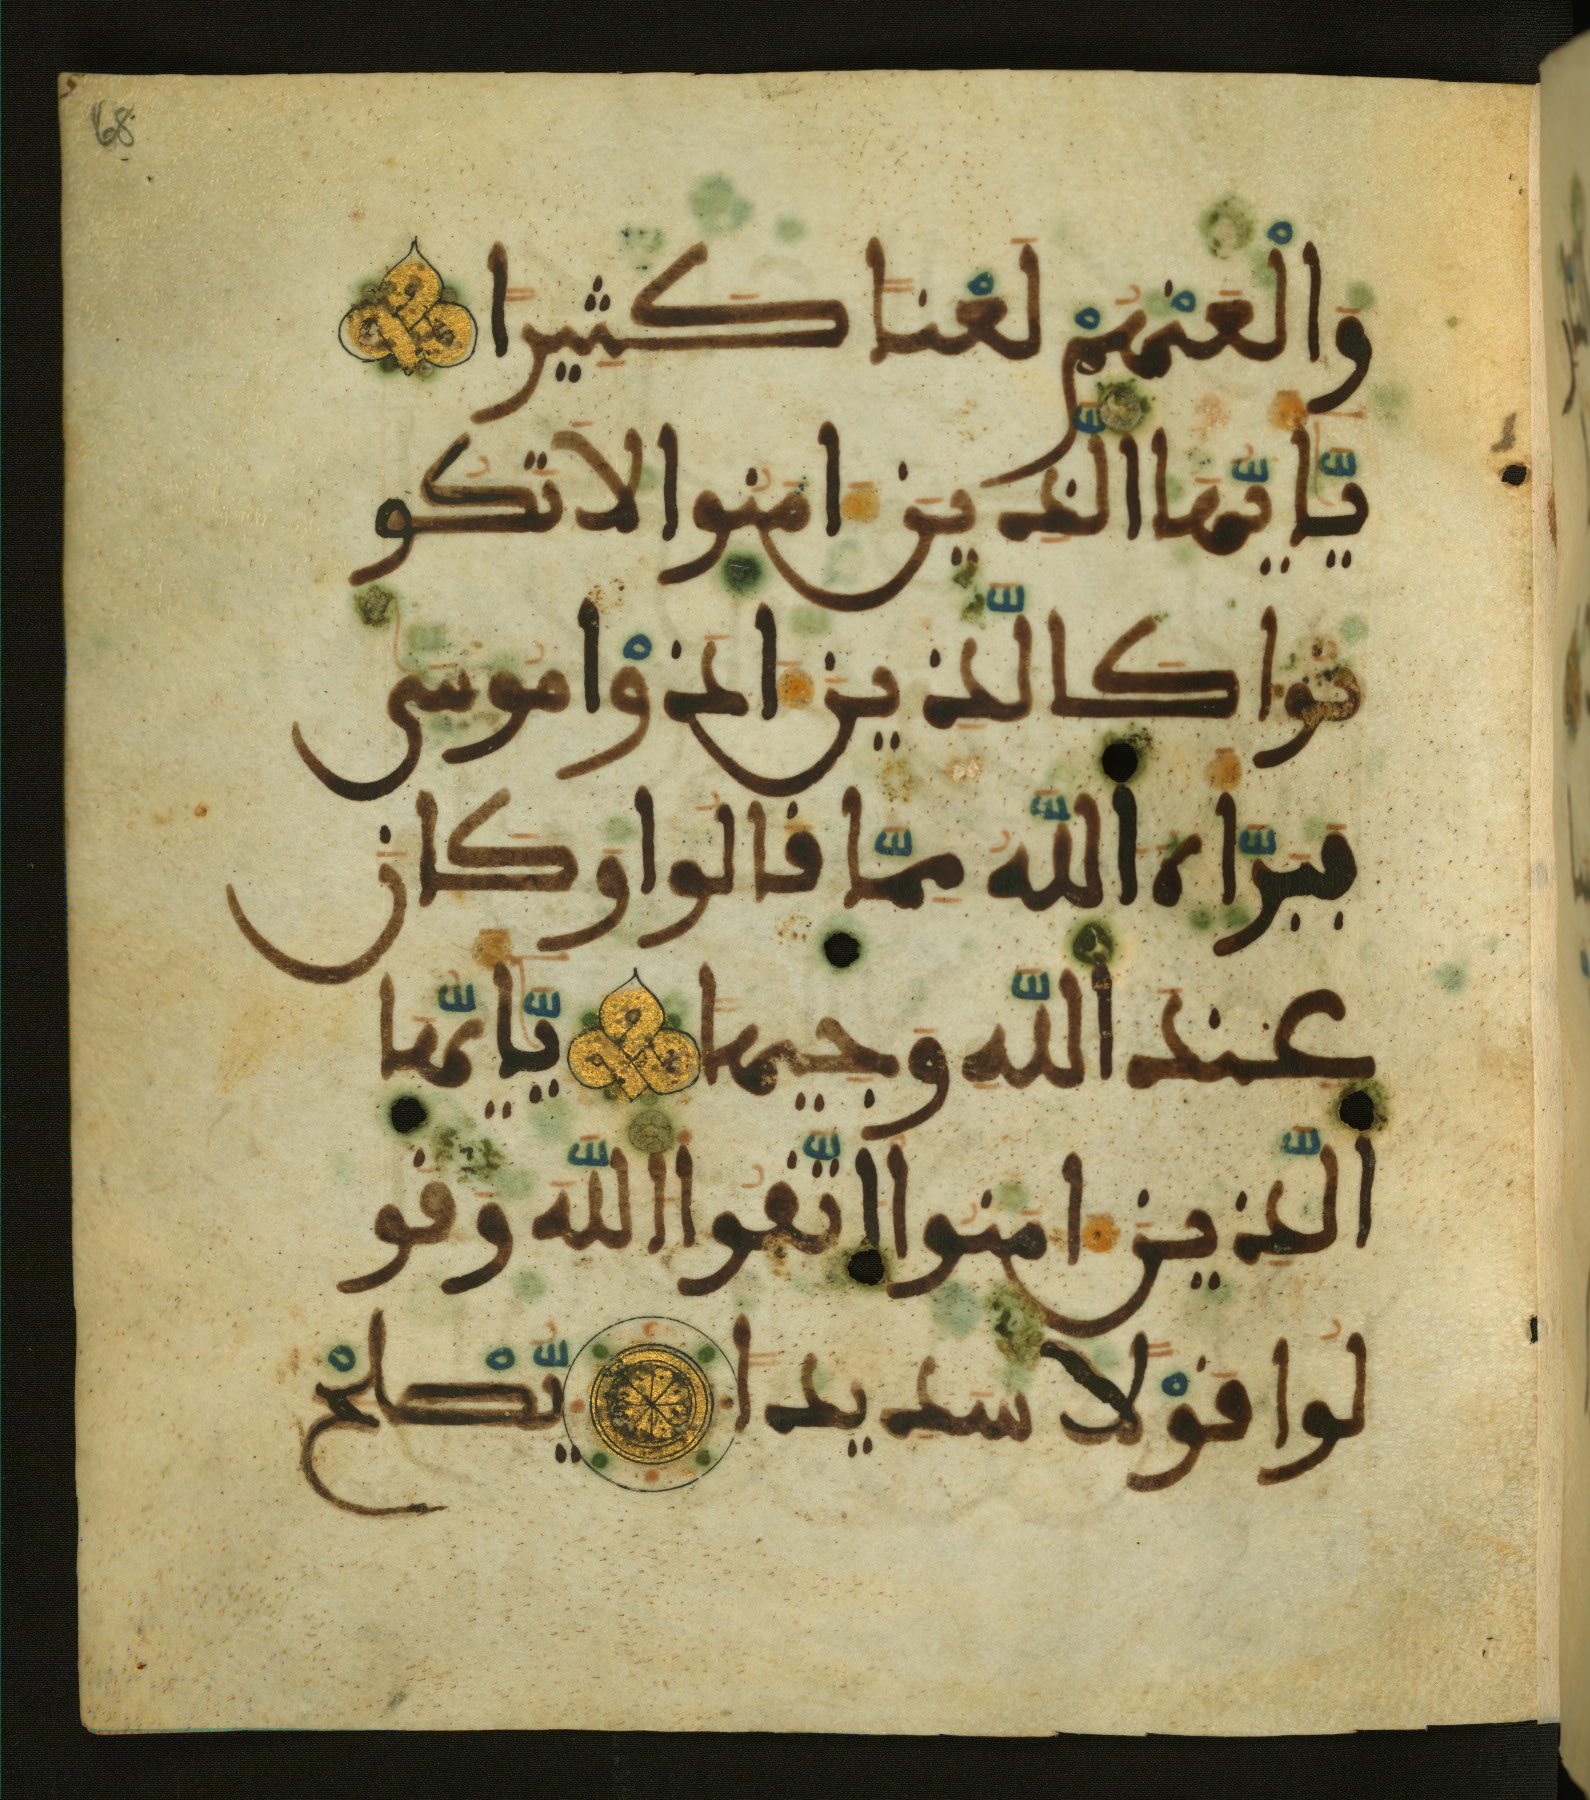 68
وَالْعَنْهُمْ لَعْنًا كَثِيرًا
يَّأَيُّهَا الَّذِينَ ءَامَنُوا لَا تَكُو
نُوا كَالَّذِينَ ءَاذَوْا مُوسَى
فَبَرَّأَهُ اللَّهُ مِمَّا قَالُوا وَكَانَ
عِندَ اللَّهِ وَجِيهًا يَّأَيُّهَا
الَّذِينَ ءَامَنُوا اتَّقُوا اللَّهَ وَقُو
لُوا قَوْلًا سَدِيدًا يُّصْلِحْ